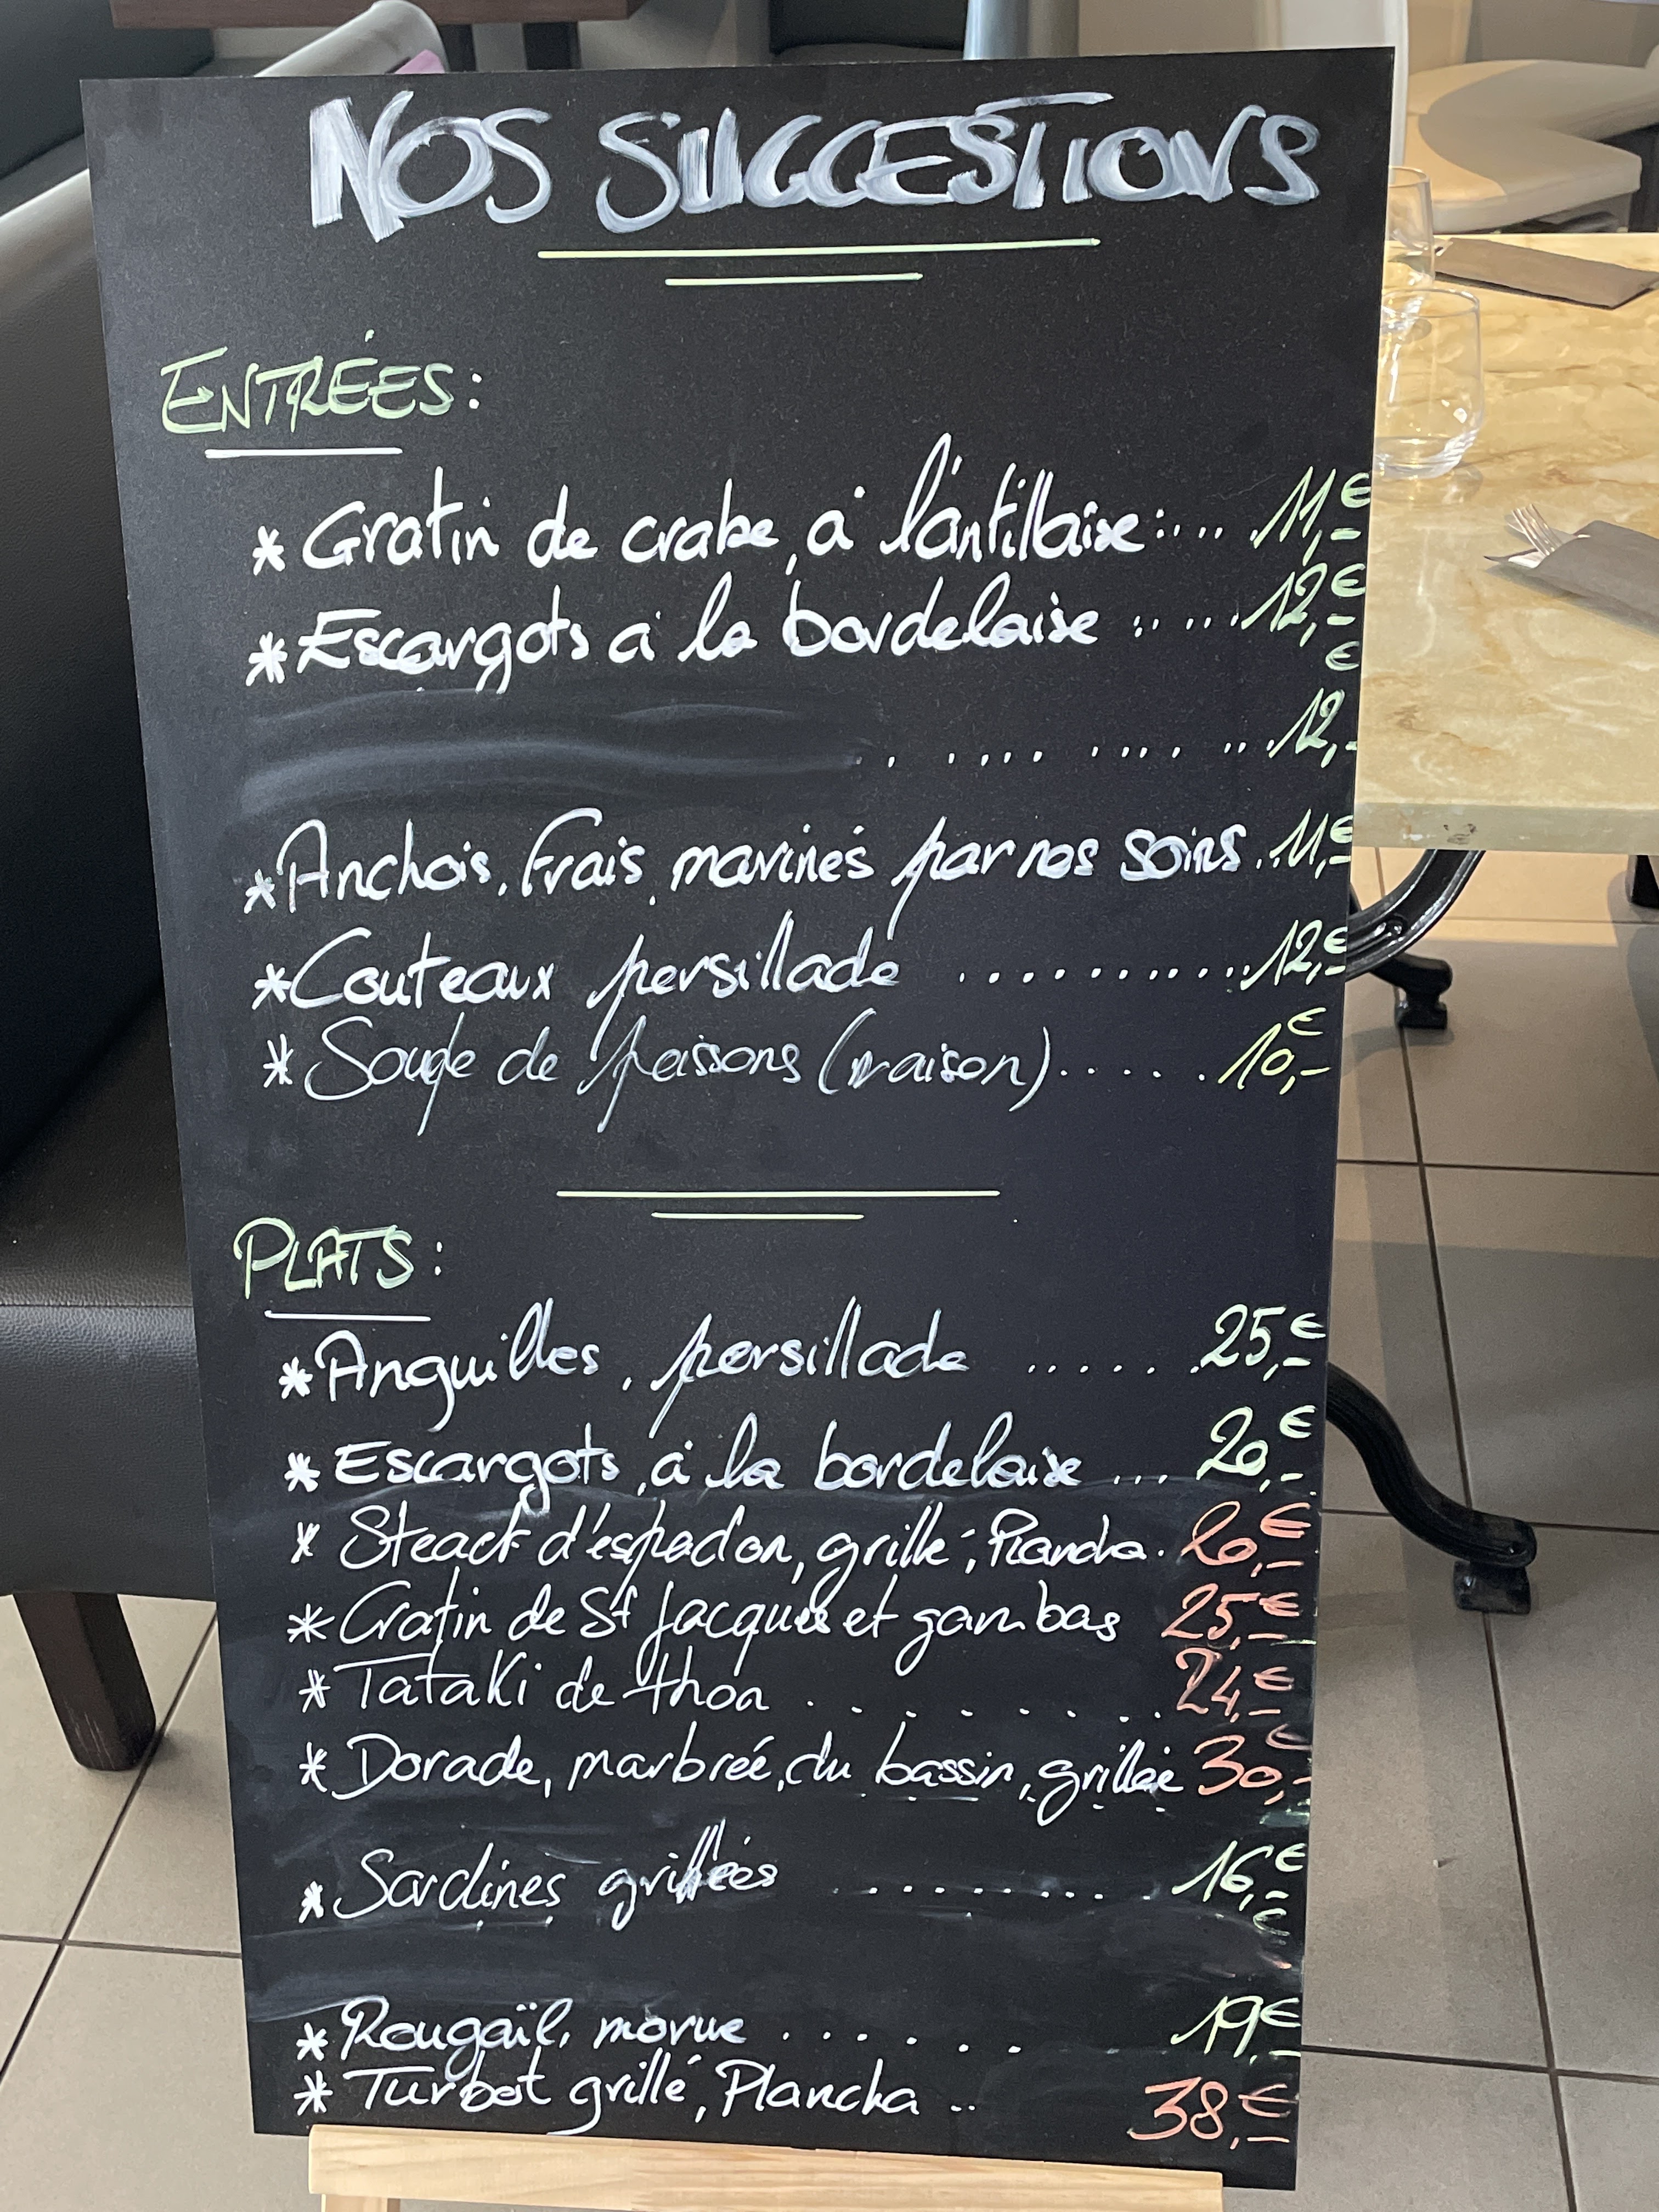 NOS SUGGESTIONS
ENTRÉES:
* Gratin de crabe, à l'antillaise:... .11,-€
* Escargots à la bordelaise ......12,-€
. .... .... ...12,-€
* Anchois, Frais, marinés par nos soins .11,-€
* Couteaux persillade ............12,-€
* Soupe de poissons (maison)..... .10,-€
PLATS:
* Anguilles, persillade ..... .25,-€
* Escargots, à la bordelaise ... 20,-€
* Steack d'éspadon, grillé, Plancha. 20,-€
* Gratin de St Jacques et gambas 25,-€
* Tataki de thon . . . . . . . .. 24,-€
* Dorade, marbrée, du bassin, grillée 30,-€
* Sardines grillées ......... . 16,-€
€
* Rougaïl, morue . . . . . . 19,-€
* Turbot grillé, Plancha .. 38,-€